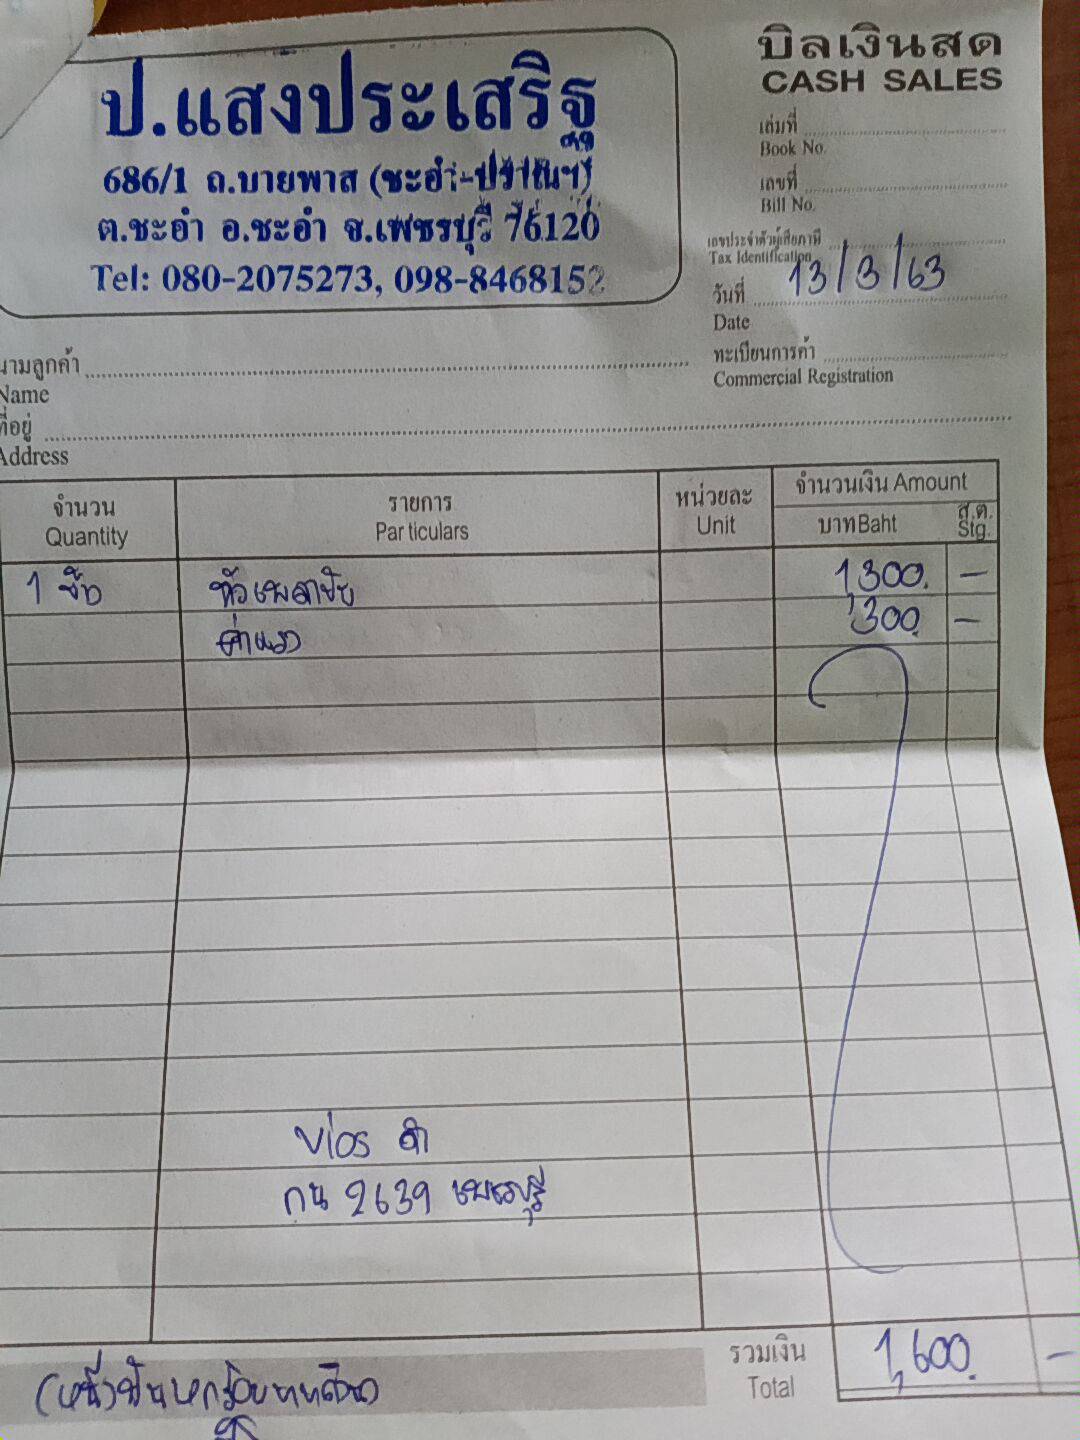 บิลเงินสด
CASH SALES
ป.แสงประเสริฐ
686/1 ถ.บายพาส (ชะอำ-ปราณฯ)
ต.ชะอำ อ.ชะอำ จ.เพชรบุรี 76120
Tel: 080-2075273, 098-8468152
เล่มที่
Book No.
เลขที่
Bill No.
เลขประจำตัวผู้เสียภาษี
Tax Identification
วันที่ 13/3/63
Date
ทะเบียนการค้า
Commercial Registration
นามลูกค้า
Name
ที่อยู่
Address
จำนวน รายการ หน่วยละ จำนวนเงิน Amount
Quantity Particulars Unit บาท Baht ส.ต. Stg.
1 หัวเพลาขับ 1,300. -
ค่าแรง 300. -
Vios ดำ
กน 2639 เพชรบุรี
รวมเงิน 1,600. -
Total
(หนึ่งพันหกร้อยบาทถ้วน)